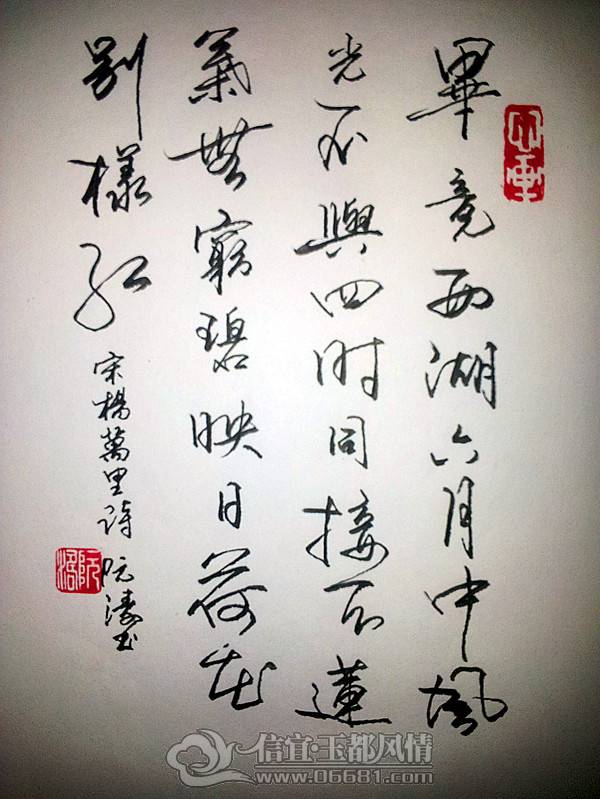 畢竟西湖六月中風
光不與四时同接天蓮
葉無窮碧映日荷花
别樣紅
宋楊萬里詩 阮濤书
信宜·玉都风情
www.06681.com